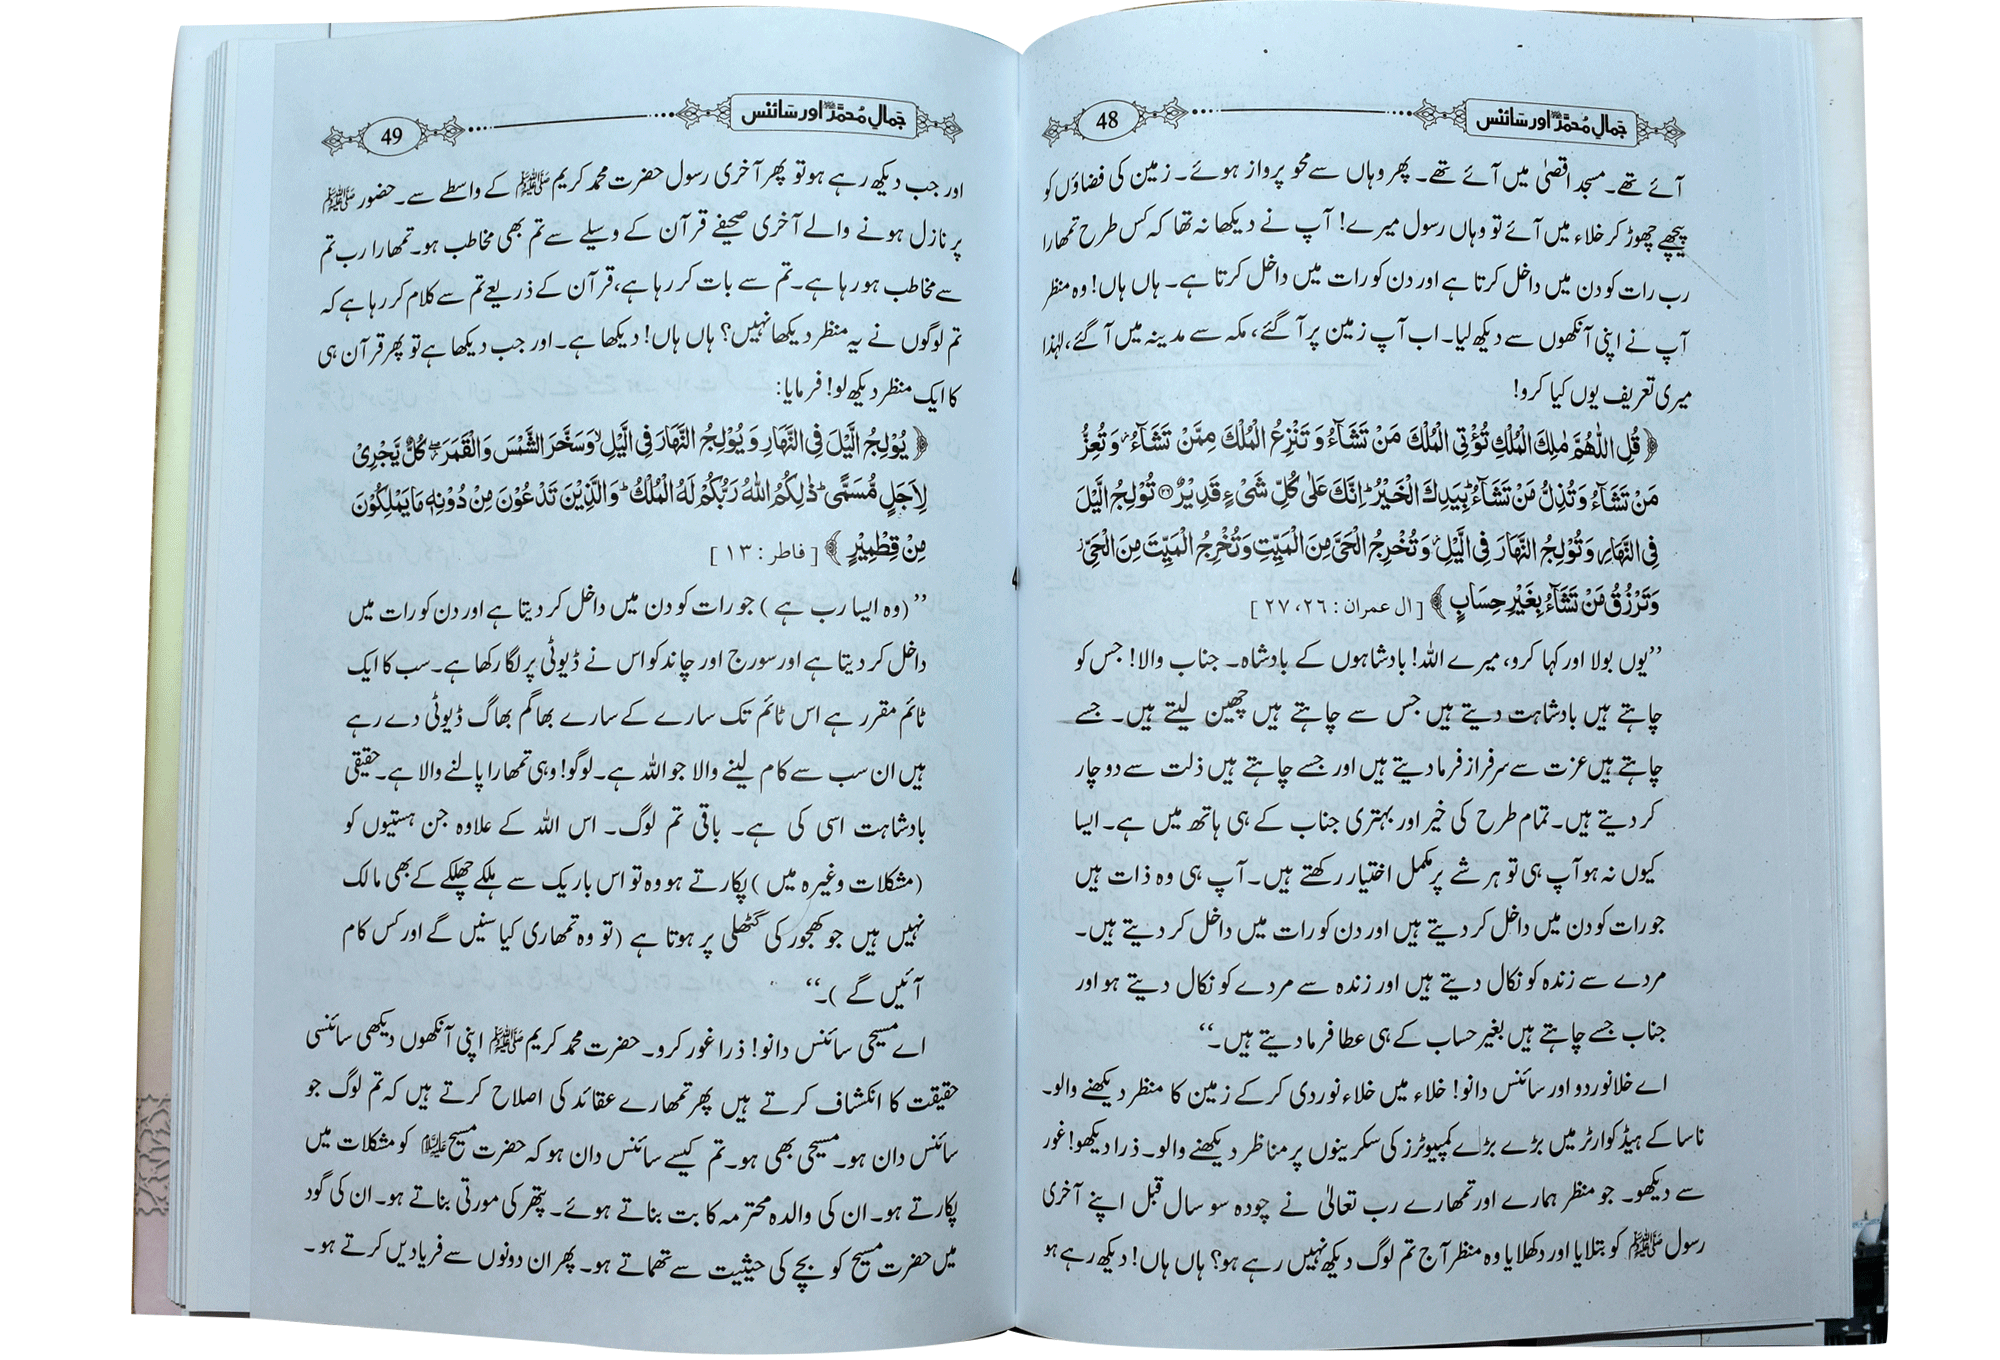 جمالِ مُحمّدﷺ اور سائنس
48
آئے تھے۔ مسجد اقصیٰ میں آئے تھے۔ پھر وہاں سے محو پرواز ہوئے۔ زمین کی فضاؤں کو
پیچھے چھوڑ کر خلاء میں آئے تو وہاں رسول میرے! آپ نے دیکھا نہ تھا کہ کس طرح تمھارا
رب رات کو دن میں داخل کرتا ہے اور دن کو رات میں داخل کرتا ہے۔ ہاں ہاں! وہ منظر
آپ نے اپنی آنکھوں سے دیکھ لیا۔ اب آپ زمین پر آ گئے، مکہ سے مدینہ میں آ گئے، لہٰذا
میری تعریف یوں کیا کرو!
﴿ قُلِ اللّٰهُمَّ مٰلِكَ الْمُلْكِ تُؤْتِی الْمُلْكَ مَنْ تَشَآءُ وَ تَنْزِعُ الْمُلْكَ مِمَّنْ تَشَآءُ ٘ وَ تُعِزُّ
مَنْ تَشَآءُ وَ تُذِلُّ مَنْ تَشَآءُ ؕ بِیَدِكَ الْخَیْرُ ؕ اِنَّكَ عَلٰی كُلِّ شَیْءٍ قَدِیْرٌ ۝۲۶ تُوْلِجُ الَّیْلَ
فِی النَّهَارِ وَ تُوْلِجُ النَّهَارَ فِی الَّیْلِ ٘ وَ تُخْرِجُ الْحَیَّ مِنَ الْمَیِّتِ وَ تُخْرِجُ الْمَیِّتَ مِنَ الْحَیِّ ٘
وَ تَرْزُقُ مَنْ تَشَآءُ بِغَیْرِ حِسَابٍ ﴾ [ ال عمران : ۲۶، ۲۷ ]
”یوں بولا اور کہا کرو، میرے اللہ! بادشاہوں کے بادشاہ۔ جناب والا! جس کو
چاہتے ہیں بادشاہت دیتے ہیں جس سے چاہتے ہیں چھین لیتے ہیں۔ جسے
چاہتے ہیں عزت سے سرفراز فرما دیتے ہیں اور جسے چاہتے ہیں ذلت سے دو چار
کر دیتے ہیں۔ تمام طرح کی خیر اور بہتری جناب کے ہی ہاتھ میں ہے۔ ایسا
کیوں نہ ہو آپ ہی تو ہر شے پر مکمل اختیار رکھتے ہیں۔ آپ ہی وہ ذات ہیں
جو رات کو دن میں داخل کر دیتے ہیں اور دن کو رات میں داخل کر دیتے ہیں۔
مردے سے زندہ کو نکال دیتے ہیں اور زندہ سے مردے کو نکال دیتے ہو اور
جناب جسے چاہتے ہیں بغیر حساب کے ہی عطا فرما دیتے ہیں۔“
اے خلانوردو اور سائنس دانو! خلاء میں خلاء نوردی کر کے زمین کا منظر دیکھنے والو۔
ناسا کے ہیڈ کوارٹر میں بڑے بڑے کمپیوٹرز کی سکرینوں پر مناظر دیکھنے والو۔ ذرا دیکھو! غور
سے دیکھو۔ جو منظر ہمارے اور تمھارے رب تعالیٰ نے چودہ سو سال قبل اپنے آخری
رسول ﷺ کو بتلایا اور دکھلایا وہ منظر آج تم لوگ دیکھ نہیں رہے ہو؟ ہاں ہاں! دیکھ رہے ہو
جمالِ مُحمّدﷺ اور سائنس
49
اور جب دیکھ رہے ہو تو پھر آخری رسول حضرت محمد کریم ﷺ کے واسطے سے۔ حضور ﷺ
پر نازل ہونے والے آخری صحیفے قرآن کے وسیلے سے تم بھی مخاطب ہو۔ تمھارا رب تم
سے مخاطب ہو رہا ہے۔ تم سے بات کر رہا ہے، قرآن کے ذریعے تم سے کلام کر رہا ہے کہ
تم لوگوں نے یہ منظر دیکھا نہیں؟ ہاں ہاں! دیکھا ہے۔ اور جب دیکھا ہے تو پھر قرآن ہی
کا ایک منظر دیکھ لو! فرمایا:
﴿ یُوْلِجُ الَّیْلَ فِی النَّهَارِ وَ یُوْلِجُ النَّهَارَ فِی الَّیْلِ ۙ وَ سَخَّرَ الشَّمْسَ وَ الْقَمَرَ ۖ٘ كُلٌّ یَّجْرِیْ
لِاَجَلٍ مُّسَمًّی ؕ ذٰلِكُمُ اللّٰهُ رَبُّكُمْ لَهُ الْمُلْكُ ؕ وَ الَّذِیْنَ تَدْعُوْنَ مِنْ دُوْنِهٖ مَا یَمْلِكُوْنَ
مِنْ قِطْمِیْرٍ ﴾ [ فاطر : ۱۳ ]
”(وہ ایسا رب ہے ) جو رات کو دن میں داخل کر دیتا ہے اور دن کو رات میں
داخل کر دیتا ہے اور سورج اور چاند کو اس نے ڈیوٹی پر لگا رکھا ہے۔ سب کا ایک
ٹائم مقرر ہے اس ٹائم تک سارے کے سارے بھاگم بھاگ ڈیوٹی دے رہے
ہیں ان سب سے کام لینے والا جو اللہ ہے۔ لوگو! وہی تمھارا پالنے والا ہے۔ حقیقی
بادشاہت اسی کی ہے۔ باقی تم لوگ۔ اس اللہ کے علاوہ جن ہستیوں کو
(مشکلات وغیرہ میں ) پکارتے ہو وہ تو اس باریک سے ہلکے چھلکے کے بھی مالک
نہیں ہیں جو کھجور کی گٹھلی پر ہوتا ہے (تو وہ تمھاری کیا سنیں گے اور کس کام
آئیں گے )۔“
اے مسیحی سائنس دانو! ذرا غور کرو۔ حضرت محمد کریم ﷺ اپنی آنکھوں دیکھی سائنسی
حقیقت کا انکشاف کرتے ہیں پھر تمھارے عقائد کی اصلاح کرتے ہیں کہ تم لوگ جو
سائنس دان ہو۔ مسیحی بھی ہو۔ تم کیسے سائنس دان ہو کہ حضرت مسیح علیہ السلام کو مشکلات میں
پکارتے ہو۔ ان کی والدہ محترمہ کا بت بناتے ہوئے۔ پتھر کی مورتی بناتے ہو۔ ان کی گود
میں حضرت مسیح کو بچے کی حیثیت سے تھماتے ہو۔ پھر ان دونوں سے فریادیں کرتے ہو۔